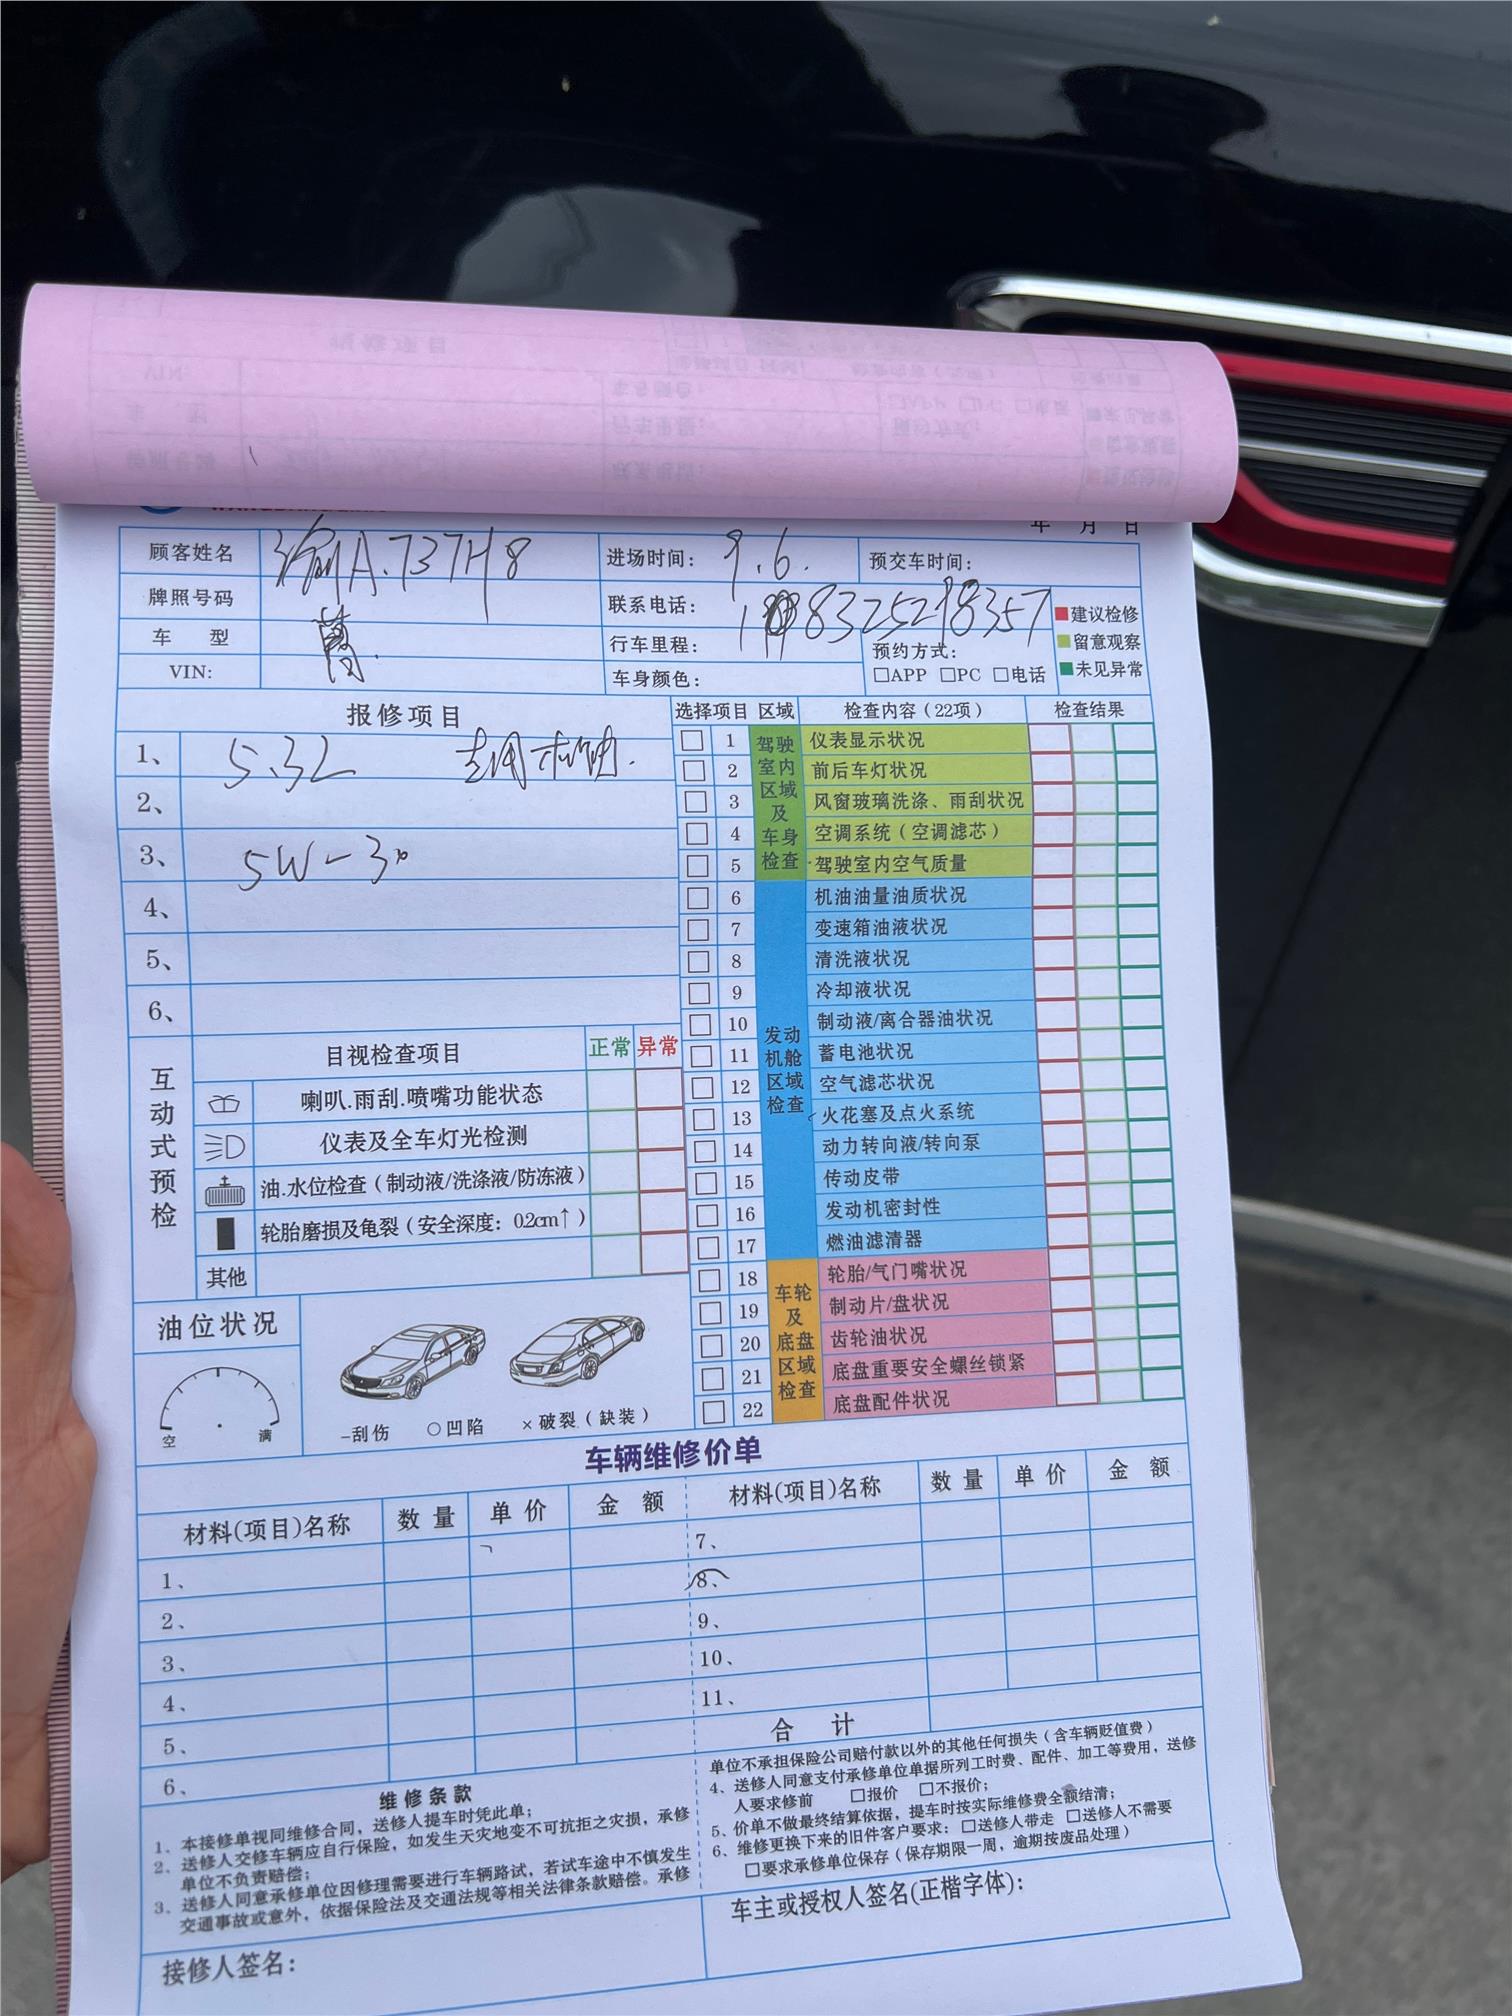 年 月 日
顾客姓名 渝A.737H8 进场时间： 9.6. 预交车时间：
牌照号码 联系电话： 18325218357
车 型 行车里程： 预约方式：
VIN: 车身颜色： □APP □PC □电话
建议检修
留意观察
未见异常
报修项目
1、 5.3L 机油.
2、
3、 5W-30
4、
5、
6、
选择项目 区域 检查内容（22项） 检查结果
驾驶室内区域及车身检查
1 仪表显示状况
2 前后车灯状况
3 风窗玻璃洗涤、雨刮状况
4 空调系统（空调滤芯）
5 驾驶室内空气质量
发动机舱区域检查
6 机油油量油质状况
7 变速箱油液状况
8 清洗液状况
9 冷却液状况
10 制动液/离合器油状况
11 蓄电池状况
12 空气滤芯状况
13 火花塞及点火系统
14 动力转向液/转向泵
15 传动皮带
16 发动机密封性
17 燃油滤清器
车轮及底盘区域检查
18 轮胎/气门嘴状况
19 制动片/盘状况
20 齿轮油状况
21 底盘重要安全螺丝锁紧
22 底盘配件状况
互动式预检
目视检查项目 正常 异常
喇叭.雨刮.喷嘴功能状态
仪表及全车灯光检测
油.水位检查（制动液/洗涤液/防冻液）
轮胎磨损及龟裂（安全深度：0.2cm↑）
其他
油位状况
空 满
–刮伤 ○凹陷 ×破裂（缺装）
车辆维修价单
材料(项目)名称 数 量 单 价 金 额 材料(项目)名称 数 量 单 价 金 额
1、 7、
2、 8、
3、 9、
4、 10、
5、 11、
6、 合 计
维修条款
1、本接修单视同维修合同，送修人提车时凭此单；
2、送修人交修车辆应自行保险，如发生天灾地变不可抗拒之灾损，承修
单位不负责赔偿；
3、送修人同意承修单位因修理需要进行车辆路试，若试车途中不慎发生
交通事故或意外，依据保险法及交通法规等相关法律条款赔偿。承修
单位不承担保险公司赔付款以外的其他任何损失（含车辆贬值费）
4、送修人同意支付承修单位单据所列工时费、配件、加工等费用，送修
人要求修前 □报价 □不报价；
5、价单不做最终结算依据，提车时按实际维修费全额结清；
6、维修更换下来的旧件客户要求：□送修人带走 □送修人不需要
□要求承修单位保存（保存期限一周，逾期按废品处理）
接修人签名：
车主或授权人签名(正楷字体)：